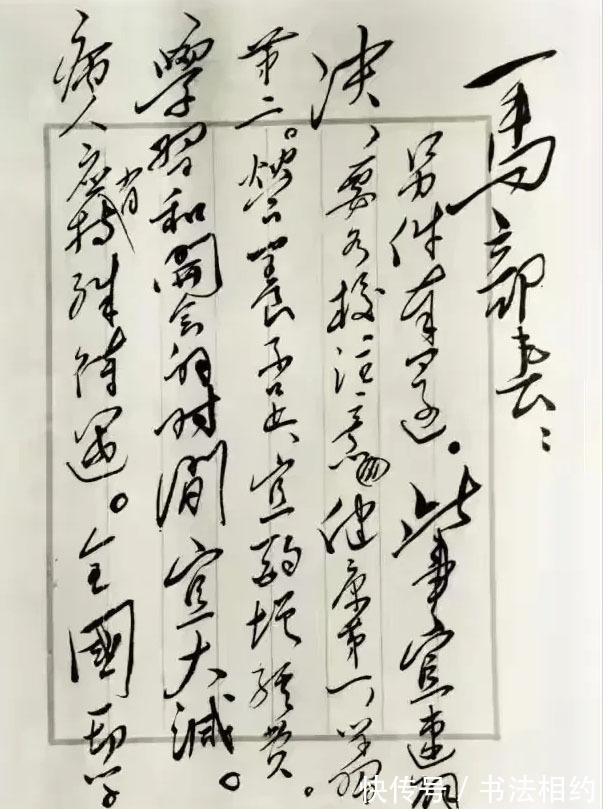 馬部長：
另件奉还。此事宜速解
决，要各校注意健康第一，学習
第二。營養不足，宜酌增經费。
學習和開会的时间宜大減。
病人應有特殊待遇。全國一切学
快传号 / 书法相约